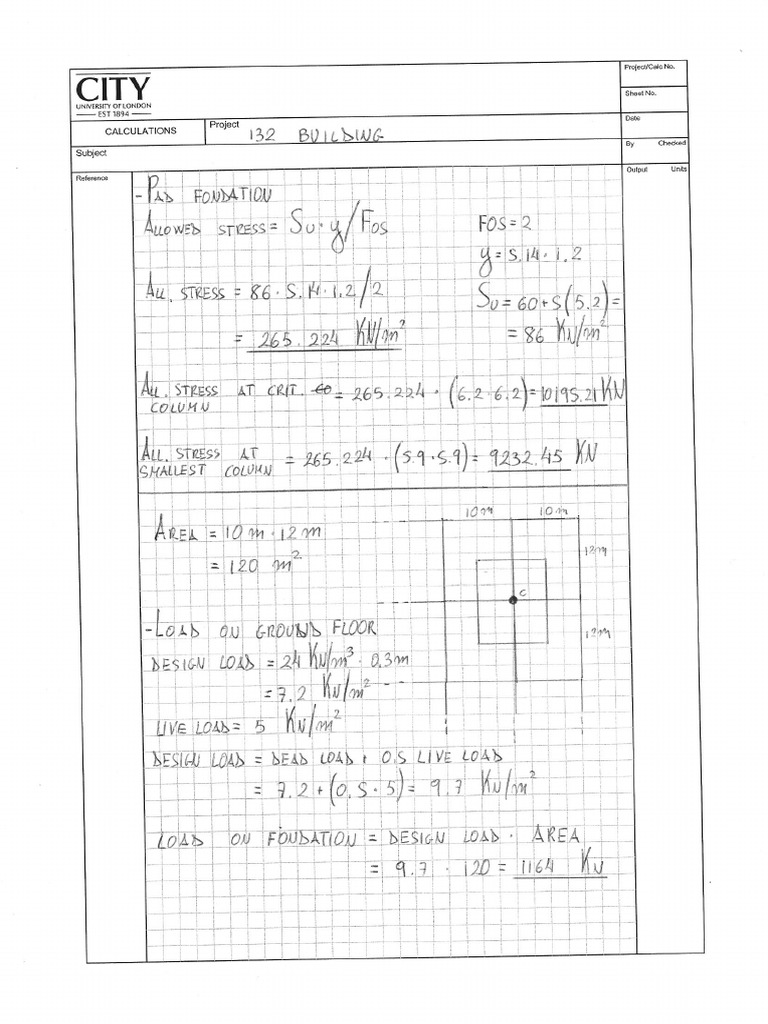 CITY
UNIVERSITY OF LONDON
EST 1894
Project/Calc No.
Sheet No.
CALCULATIONS
Project
132 BUILDING
Date
Subject
By Checked
Reference
Output Units
- PAD FONDATION
ALLOWED STRESS = Su · y / FOS
FOS = 2
y = 5.14 · 1.2
ALL. STRESS = 86 · 5.14 · 1.2 / 2
Su = 60 + 5(5.2) =
= 265.224 KN/m²
= 86 KN/m²
ALL. STRESS AT CRIT. = 265.224 · (6.2 · 6.2) = 10195.21 KN
COLUMN
ALL. STRESS AT
SMALLEST COLUMN = 265.224 · (5.9 · 5.9) = 9232.45 KN
10m 10m
AREA = 10 m · 12 m
= 120 m²
12m
C
12m
- LOAD ON GROUND FLOOR
DESIGN LOAD = 24 KN/m³ · 0.3m
= 7.2 KN/m²
LIVE LOAD = 5 KN/m²
DESIGN LOAD = DEAD LOAD + 0.5 LIVE LOAD
= 7.2 + (0.5 · 5) = 9.7 KN/m²
LOAD ON FONDATION = DESIGN LOAD · AREA
= 9.7 · 120 = 1164 KN